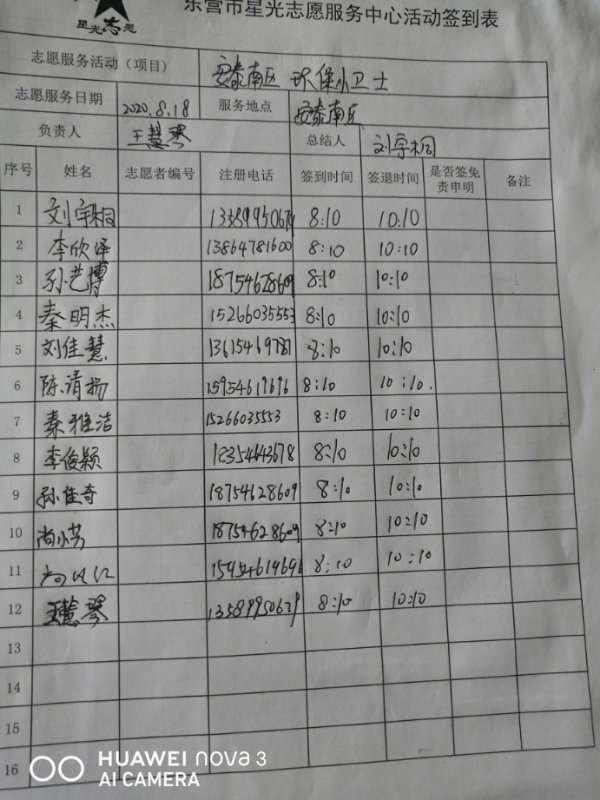 星光志愿
东营市星光志愿服务中心活动签到表
志愿服务活动（项目） 安泰南区 环保小卫士
志愿服务日期 2020.8.18 服务地点 安泰南区
负责人 王慧琴 总结人 刘宇桐
序号 姓名 志愿者编号 注册电话 签到时间 签退时间 是否签免责申明 备注
1 刘宇桐 8:10 10:10
2 李欣泽 13864781600 8:10 10:10
3 孙艺博 18754628609 8:10 10:10
4 秦明杰 15266035553 8:10 10:10
5 刘佳慧 8:10 10:10
6 陈清扬 15954619696 8:10 10:10.
7 秦雅洁 15266035553 8:10 10:10
8 李俊颖 18354643678 8:10 10:10
9 孙佳奇 18754628609 8:10 10:10
10 尚小芳 18754628609 8:10 10:10
11 8:10 10:10
12 王慧琴 13589950679 8:10 10:10
13
14
15
16
HUAWEI nova 3
AI CAMERA